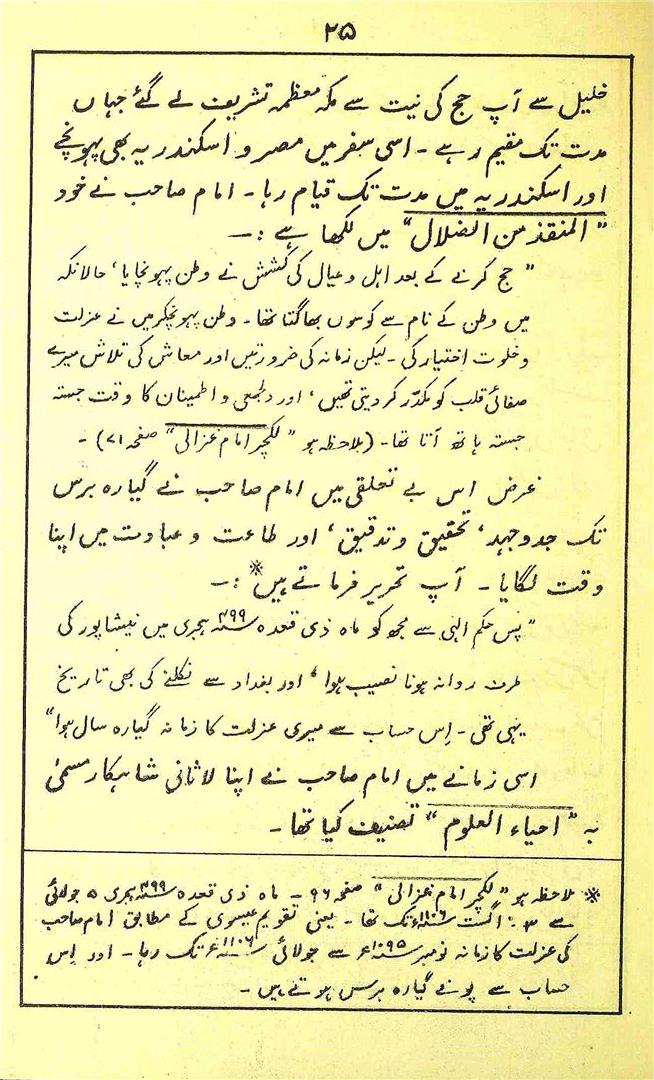 ۲۵
خلیل سے آپ حج کی نیت سے مکہ معظمہ تشریف لے گئے جہاں
مدت تک مقیم رہے ۔ اسی سفر میں مصر و اسکندریہ بھی پہونچے
اور اسکندریہ میں مدت تک قیام رہا ۔ امام صاحب نے خود
”المنقذ من الضلال“ میں لکھا ہے :۔
”حج کرنے کے بعد اہل و عیال کی کشش نے وطن پہونچایا، حالانکہ
میں وطن کے نام سے کوسوں بھاگتا تھا ۔ وطن پہونچکر میں نے عزلت
و خلوت اختیار کی ۔ لیکن زمانہ کی ضرورتیں اور معاش کی تلاش میرے
صفائی قلب کو مکدّر کر دیتی تھیں، اور دلجمعی و اطمینان کا وقت جستہ
جستہ ہاتھ آتا تھا ۔ (ملاحظہ ہو ”لکچر امام غزالی“ صفحہ ۷۱) ۔
غرض اس بے تعلقی میں امام صاحب نے گیارہ برس
تک جدوجہد، تحقیق و تدقیق، اور طاعت و عبادت میں اپنا
وقت لگایا ۔ آپ تحریر فرماتے ہیں※ :۔
”پس حکم الٰہی سے مجھ کو ماہ ذی قعدہ ۴۹۹؁ ہجری میں نیشاپور کی
طرف روانہ ہونا نصیب ہوا، اور بغداد سے نکلنے کی بھی تاریخ
یہی تھی ۔ اِس حساب سے میری عزلت کا زمانہ گیارہ سال ہوا“
اسی زمانے میں امام صاحب نے اپنا لاثانی شاہکار مسمّیٰ
بہ ”احیاء العلوم“ تصنیف کیا تھا ۔
※ ملاحظہ ہو ”لکچر امام غزالی“ صفحہ ۹۶ ۔ ماہ ذی قعدہ ۴۹۹؁ ہجری ۵ جولائی
سے ۳؍ اگست ۱۱۰۶؁ء تک تھا ۔ یعنی تقویم عیسوی کے مطابق امام صاحب
کی عزلت کا زمانہ نومبر ۱۰۹۵؁ء سے جولائی ۱۱۰۶؁ء تک رہا ۔ اور اِس
حساب سے پونے گیارہ برس ہوتے ہیں ۔